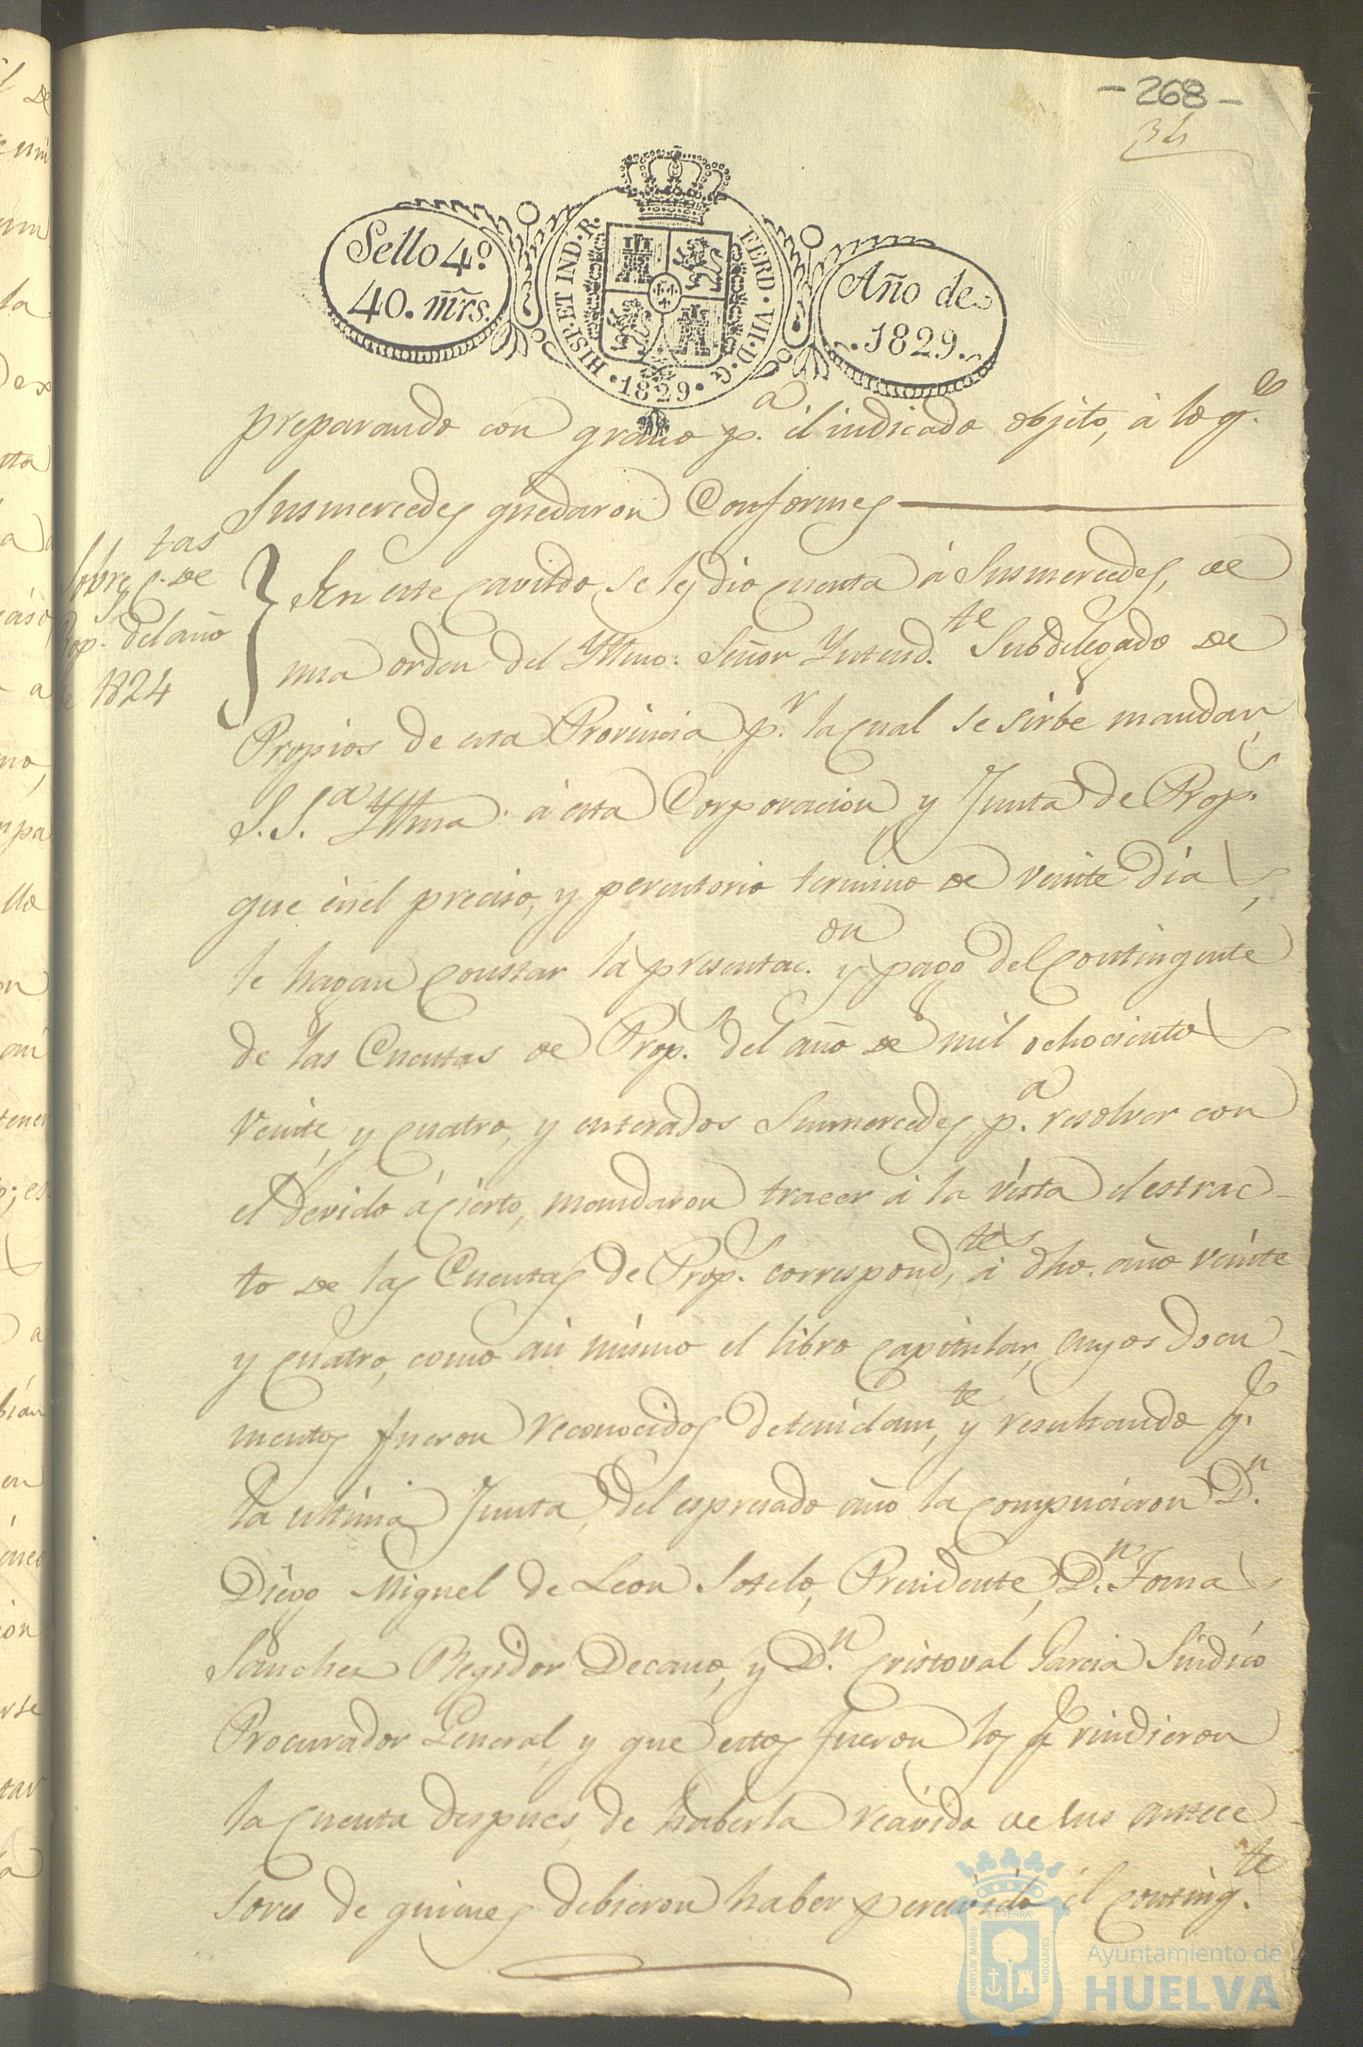 - 268 -
34
Sello 4º
40. mrs.
HISP. ET IND. R. FERD. VII. D. G. 1829
Año de
1829
preparando con grano p.a el indicado objeto, á lo q.e
Susmercedes quedaron Conformes
Sobre c.tas de
Prop.s del año
de 1824
En este Cavildo se les dio cuenta á Susmercedes, de
una orden del Yltmo: Señor Yntend.te Subdelegado de
Propios de esta Provincia p.r la cual se sirbe mandar
S. S.a Yltma: á esta Corporacion y Junta de Prop.s
que en el preciso, y perentorio termino de veinte dias,
le hagan constar la presentac.on y pago del Contingente
de las Cuentas de Prop.s del año de mil ochocientos
veinte, y cuatro, y enterados Susmercedes p.a resolver con
el devido ácierto, mandaron traer á la vista el estrac-
to de las Cuentas de Prop.s correspond.tes á dho. año veinte
y cuatro, como asi mismo el libro capitular, cuyos docu-
mentos fueron reconocidos detenidam.te y resultando q.e
la ultima Junta, del espresado año la compusieron D.n
Diego Miguel de Leon Sotelo, Presidente, D.n Tomas
Sanchez Regidor Decano, y D.n Cristoval Garcia Sindico
Procurador General, y que estos fueron los q.e rindieron
la Cuenta despues, de haberla recivido de sus antece-
sores de quienes debieron haber percivido el conting.te
PORTUS MARIS ET TERRÆ CUSTODIA
Ayuntamiento de
HUELVA